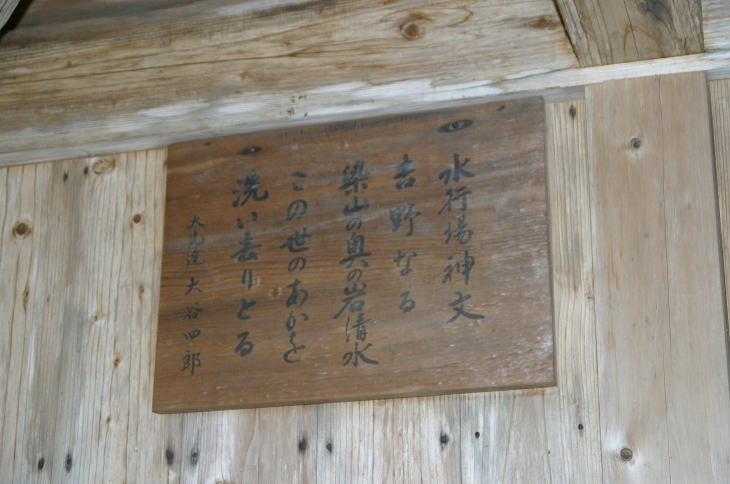 水行場神文
吉野なる
梁山の奥の岩清水
この世のあかを
洗い去りとる
大谷四郎